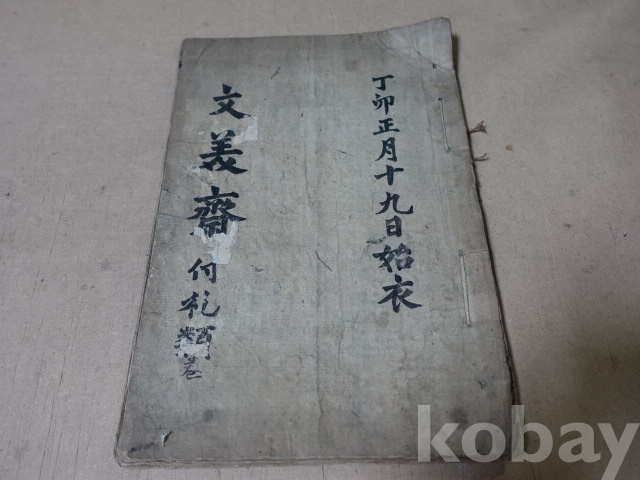 丁卯正月十九日始衣
文義齋
何乾類卷
kobay